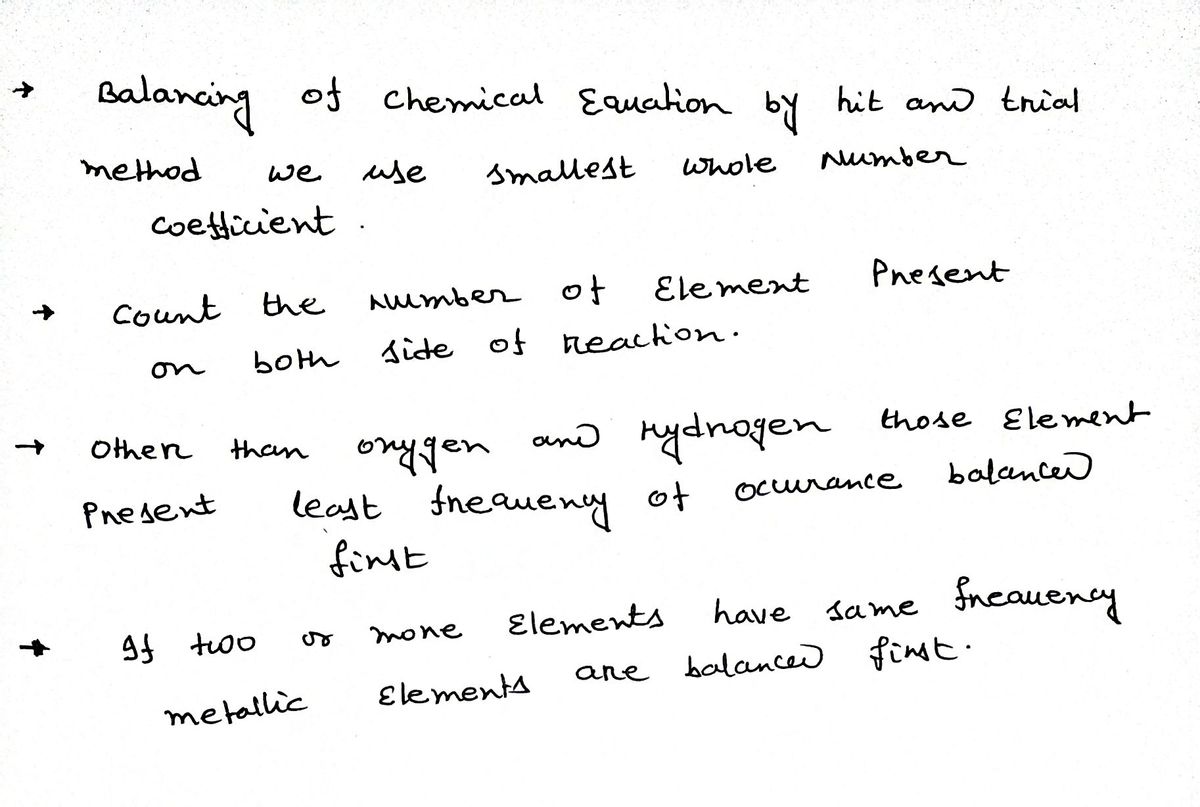 → Balancing of chemical Equation by hit and trial
method we use smallest whole Number
coefficient.
→ count the Number of Element Present
on both side of reaction.
→ Other than oxygen and Hydrogen those Element
Present least frequency of occurance balanced
first
→ If two or more Elements have same frequency
metallic Elements are balanced first.